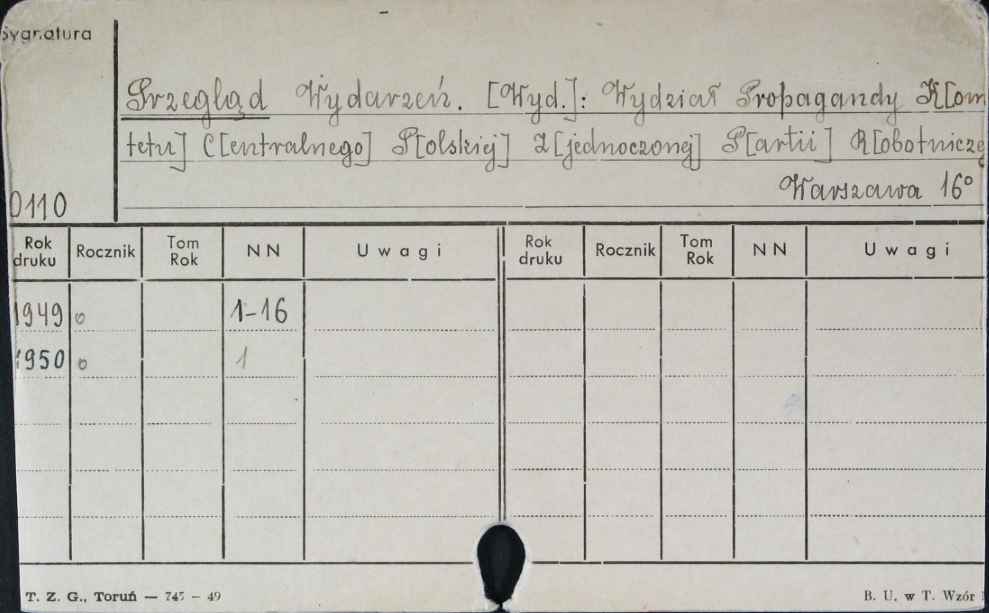 Sygnatura
Przegląd Wydarzeń. [Wyd.]: Wydział Propagandy K[om
tetu] C[entralnego] P[olskiej] Z[jednoczonej] P[artii] R[obotnicze
Warszawa 16°
0110
Rok druku Rocznik Tom Rok NN Uwagi Rok druku Rocznik Tom Rok NN Uwagi
1949 o 1-16
1950 o 1
T. Z. G., Toruń — 745 – 49 B. U. w T. Wzór